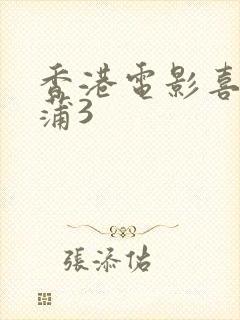 香港電影喜
蒲3
張添佑